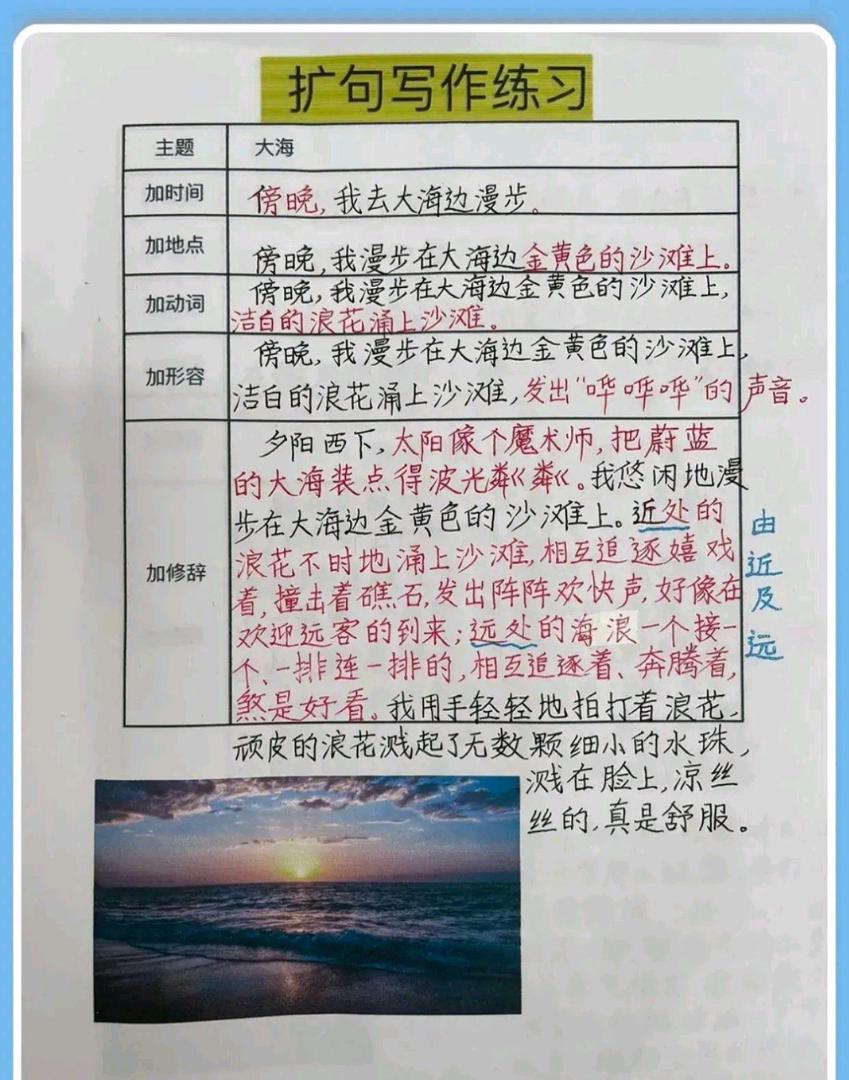 扩句写作练习
主题 大海
加时间 傍晚,我去大海边漫步。
加地点 傍晚,我漫步在大海边金黄色的沙滩上。
加动词 傍晚,我漫步在大海边金黄色的沙滩上,
洁白的浪花涌上沙滩。
加形容 傍晚,我漫步在大海边金黄色的沙滩上,
洁白的浪花涌上沙滩,发出“哗哗哗”的声音。
加修辞
夕阳西下,太阳像个魔术师,把蔚蓝
的大海装点得波光粼粼。我悠闲地漫
步在大海边金黄色的沙滩上。近处的
浪花不时地涌上沙滩,相互追逐嬉戏
着,撞击着礁石,发出阵阵欢快声,好像在
欢迎远客的到来;远处的海浪一个接一
个、一排连一排的,相互追逐着、奔腾着,
煞是好看。我用手轻轻地拍打着浪花,
顽皮的浪花溅起了无数颗细小的水珠,
溅在脸上,凉丝
丝的,真是舒服。
由近及远